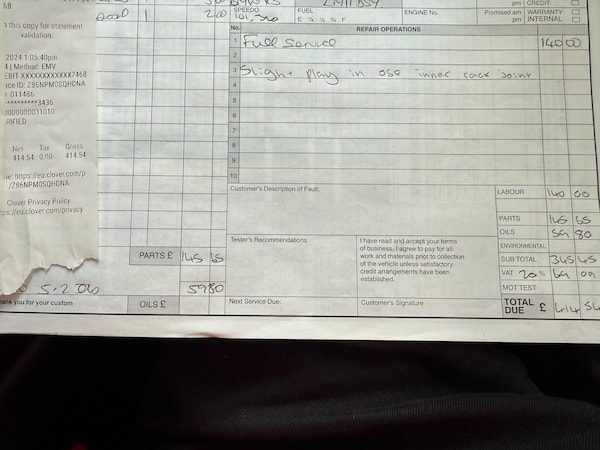 68
this copy for statement
validation
2024 1:05:40pm
Method: EMV
EBIT XXXXXXXXXXXX7468
ice ID: Z86NPM0SQHDNA
011486
*********3436
0000000031010
RIFIED
Net Tax Gross
414.54 0.00 414.54
e: https://eu.clover.com/p
/Z86NPM0SQHDNA
Clover Privacy Policy
ps://eu.clover.com/privacy
1 200
PARTS £ 145 65
5-2.06
OILS £ 59 80
ank you for your custom
SPEEDO
FUEL
E ¼ ½ ¾ F
ENGINE No.
pm
Promised am
pm
CREDIT
WARRANTY
INTERNAL
No. REPAIR OPERATIONS
1 Full Service 140 00
2
3 Slight play in OSF inner rack joint
4
5
6
7
8
9
10
Customer's Description of Fault:
Tester's Recommendations
I have read and accept your terms
of business. I agree to pay for all
work and materials prior to collection
of the vehicle unless satisfactory
credit arrangements have been
established.
Next Service Due:
Customer's Signature
LABOUR 140 00
PARTS 145 65
OILS 59 80
ENVIRONMENTAL
SUB TOTAL 345 45
VAT 20% 69 09
MOT TEST
TOTAL
DUE £ 414 54